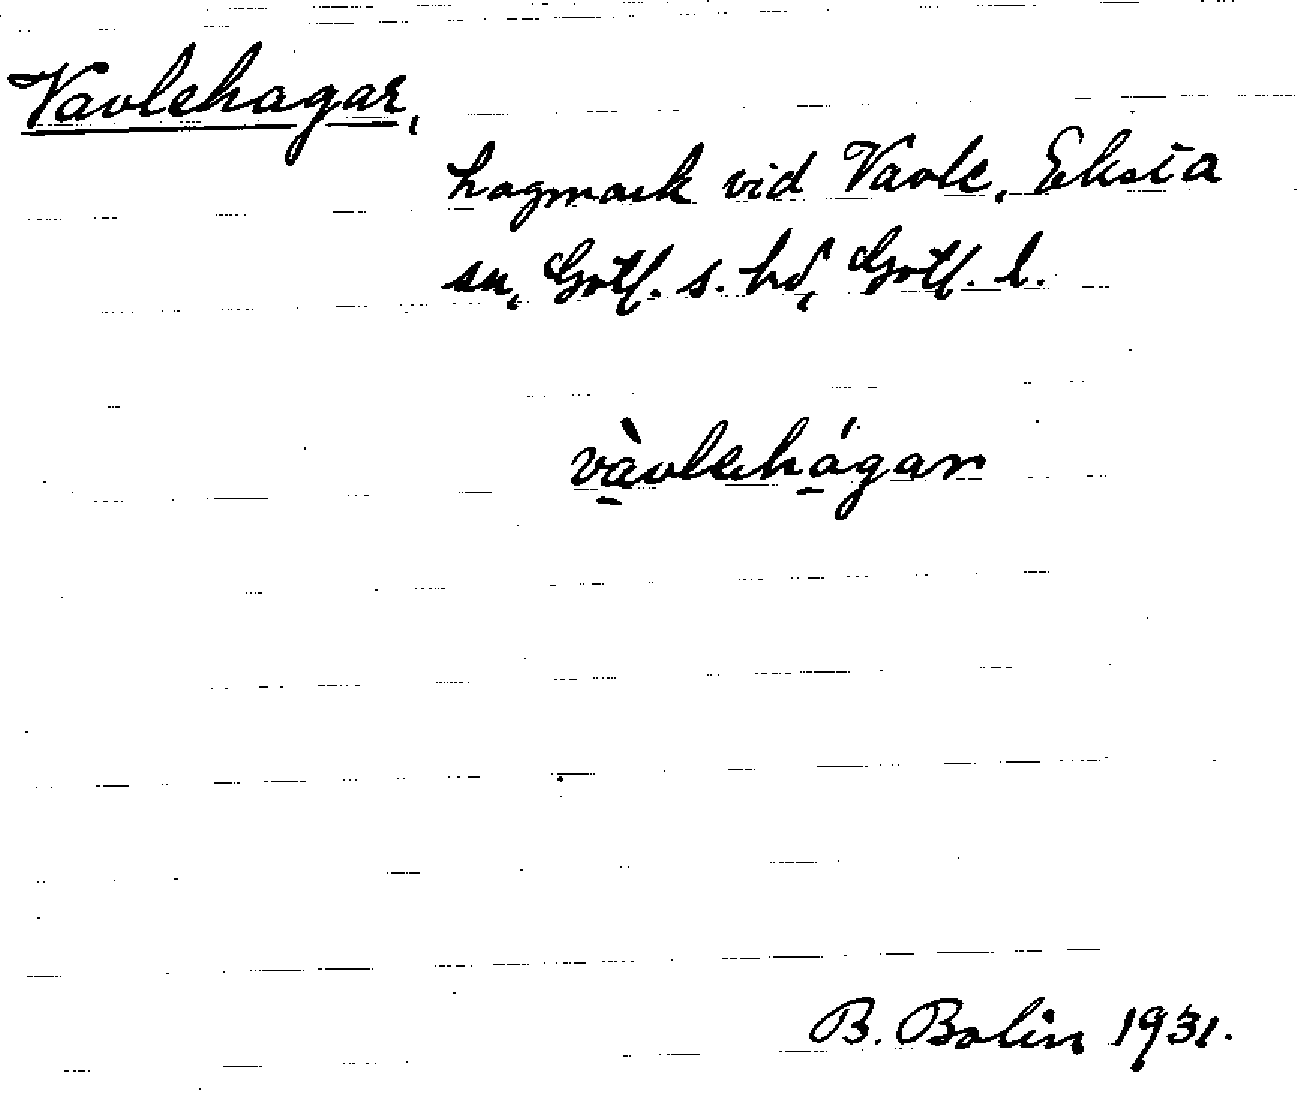 Vavlehagar,
hagmark vid Vavle, Eksta
sn, Gotl. s. hd, Gotl. l.
và̱vlehá̱gar
B. Bolin 1931.